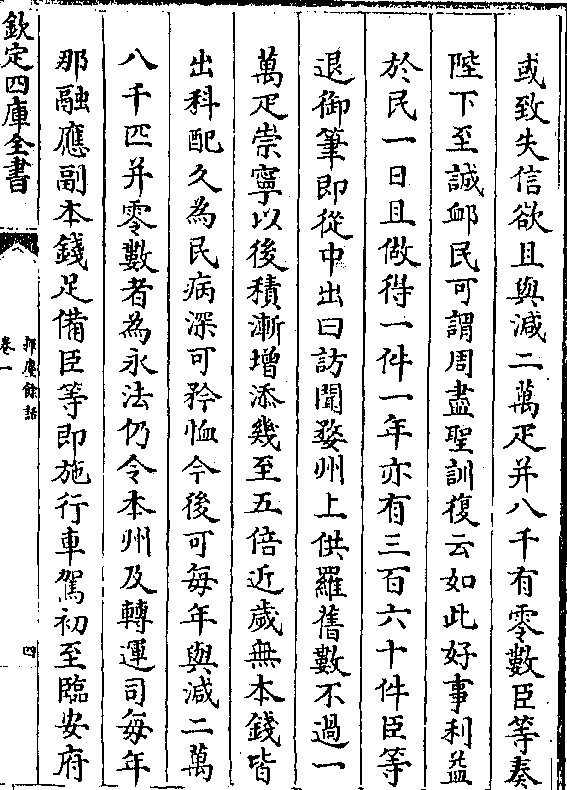 或致失信欲且與減二萬疋并八千有零數臣等奏
陛下至誠䘏民可謂周盡聖訓復云如此好事利益
於民一日且做得一件一年亦有三百六十件臣等
退御筆即從中出曰訪聞婺州上供羅舊數不過一
萬疋崇寧以後積漸增添幾至五倍近歲無本錢皆
出科配久為民病深可矜恤今後可每年與減二萬
八千匹并零數者為永法仍令本州及轉運司每年
那融應副本錢足備臣等即施行車駕初至臨安府
欽定四庫全書
揮麈餘話
卷一
四